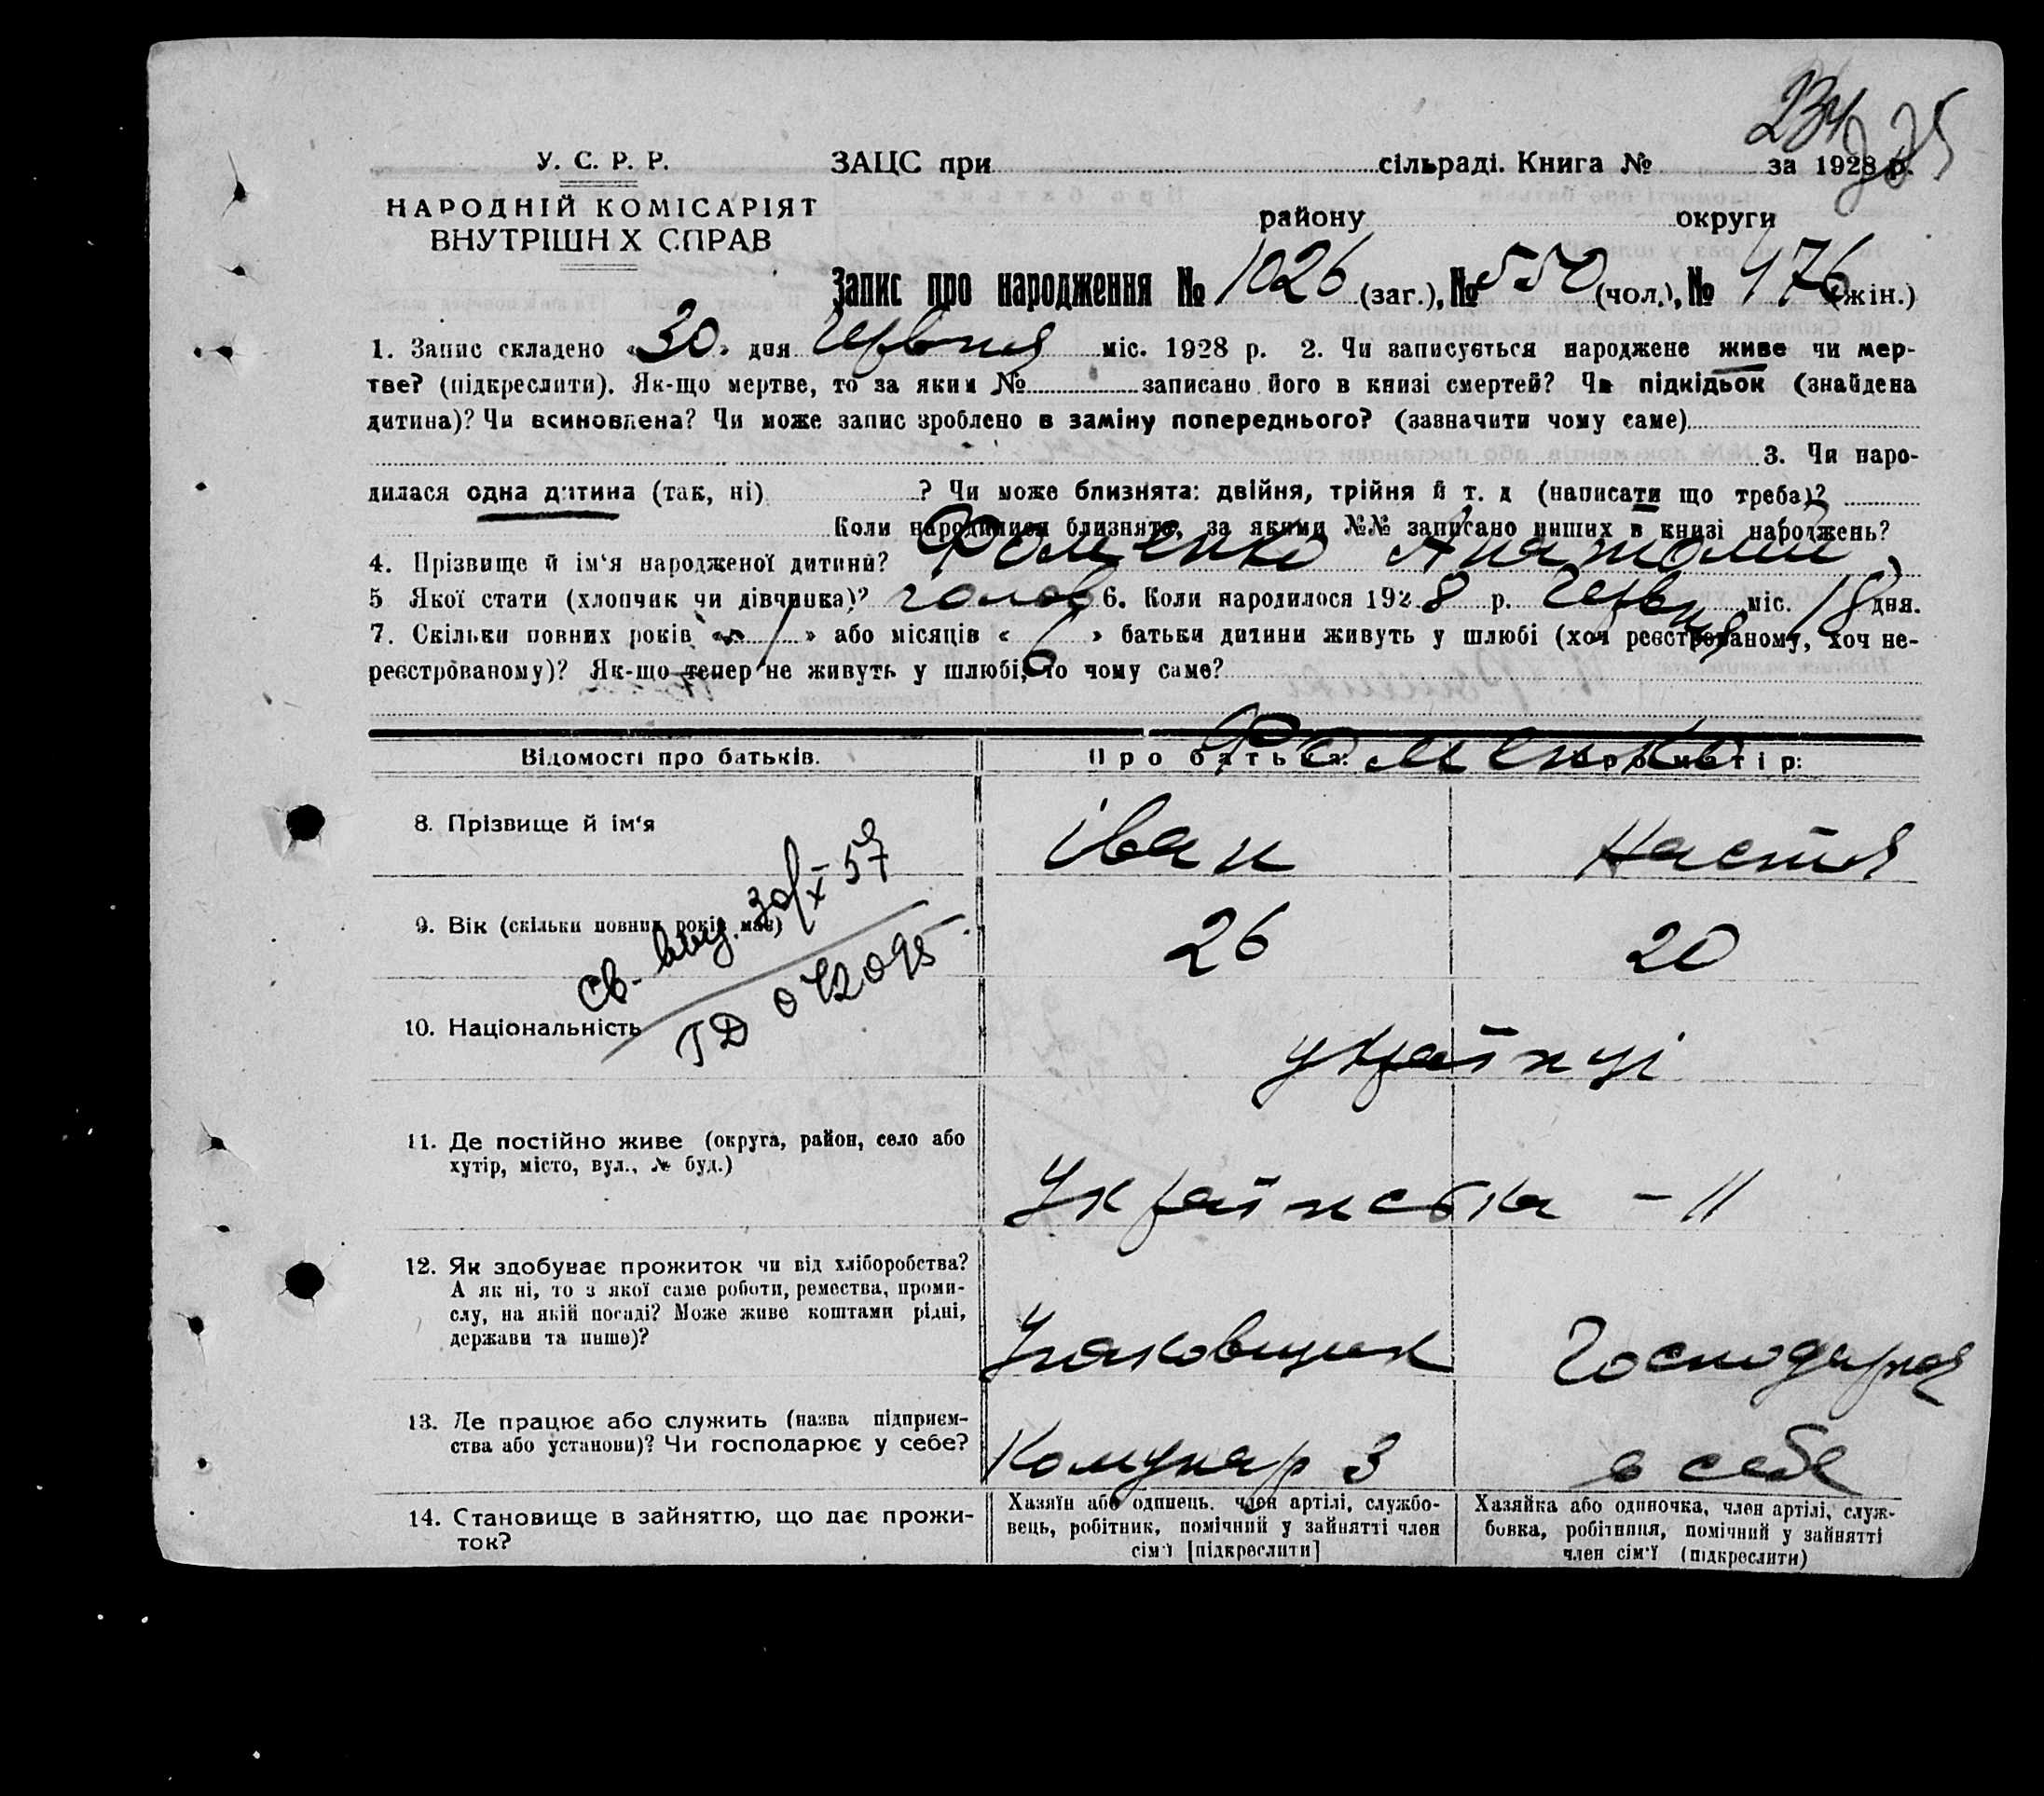 234 235
У. С. Р. Р.
ЗАЦС при сільраді. Книга № за 1928 р.
НАРОДНІЙ КОМІСАРІЯТ
ВНУТРІШН Х СПРАВ
району округи
Запис про народження № 1026 (заг.), № 550 (чол.), № 476 (жін.)
1. Запис складено «30» дня Червня міс. 1928 р. 2. Чи записується народжене живе чи мер-
тве? (підкреслити). Як-що мертве, то за яким № записано його в книзі смертей? Чи підкідьок (знайдена
дитина)? Чи всиновлена? Чи може запис зроблено в заміну попереднього? (зазначити чому саме)
3. Чи наро-
дилася одна дитина (так, ні) ? Чи може близнята: двійня, трійня й т. д (написати що треба)?
Коли народилися близнята, за якими №№ записано инших в книзі народжень?
4. Прізвище й ім‘я народженої дитини? Фоменко Анатолий
5 Якої стати (хлопчик чи дівчинка)? чолов 6. Коли народилося 1928 р. Червня міс. 18 дня.
7. Скільки повних років « 1 » або місяців « 6 » батьки дитини живуть у шлюбі (хоч реєстрованому, хоч не-
реєстрованому)? Як-що тепер не живуть у шлюбі, то чому саме?
Фоменко
Відомості про батьків. Про батька: Про матір:
8. Прізвище й ім‘я Іван Настя
9. Вік (скільки повних років має) 26 20
св. выд. 30/X 57
ГД 072095
10. Національність українці
11. Де постійно живе (округа, район, село або
хутір, місто, вул., № буд.)
Українська - 11
12. Як здобуває прожиток чи від хліборобства?
А як ні, то з якої саме роботи, ремества, проми-
слу, на якій посаді? Може живе коштами рідні,
держави та инше)?
Упаковщик Господарка
13. Де працює або служить (назва підприєм-
ства або установи)? Чи господарює у себе?
Комунар 3 в себе
14. Становище в зайняттю, що дає прожи-
ток?
Хазяїн або одинець. член артілі, службо-
вець, робітник, помічний у зайнятті член
сім‘ї [підкреслити]
Хазяйка або одиночка, член артілі, служ-
бовка, робітниця, помічний у зайнятті
член сім‘ї (підкреслити)